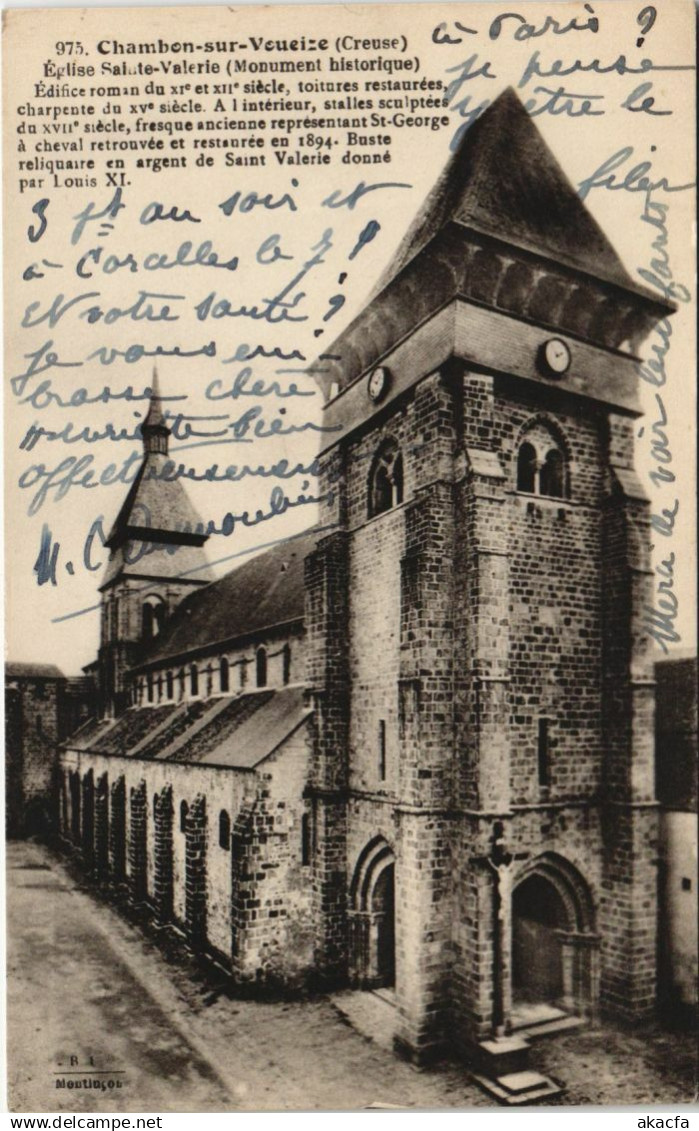 975. Chambon-sur-Voueize (Creuse)
Église Sainte-Valerie (Monument historique)
Édifice roman du XIe et XIIe siècle, toitures restaurées,
charpente du XVe siècle. A l intérieur, stalles sculptées
du XVIIe siècle, fresque ancienne représentant St-George
à cheval retrouvée et restaurée en 1894. Buste
reliquaire en argent de Saint Valerie donné
par Louis XI.
à Paris ?
je pense
être le
filer
3 pt au soir et
à Coralles le 7 !
Et votre santé ?
Je vous em-
brasse chère
Henriette bien
affectueusement
M.
Merci de voir les
enfants
R I
Montluçon
www.akacfa.com